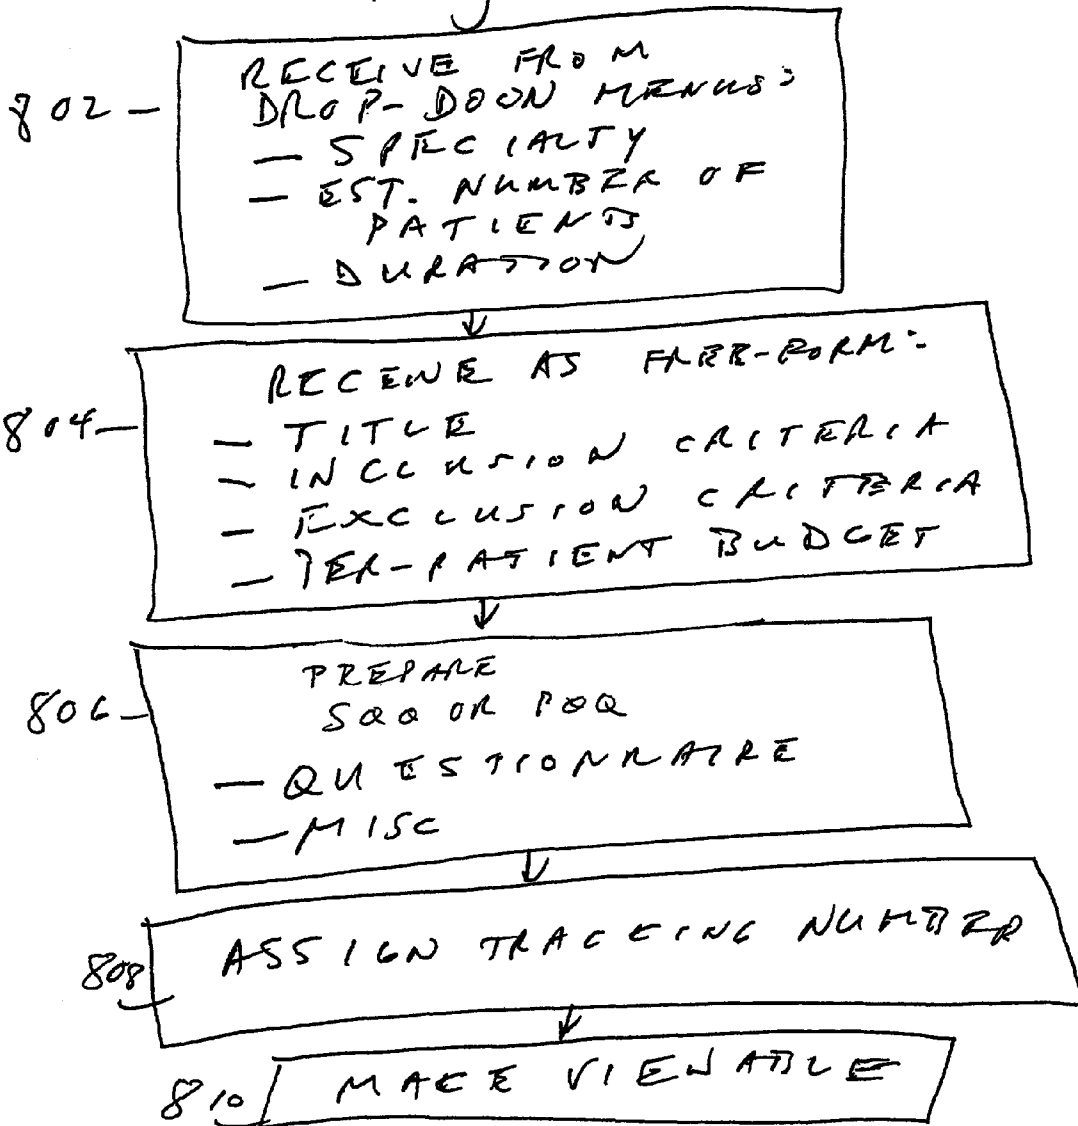 802
RECEIVE FROM
DROP-DOWN MENUS:
— SPECIALTY
— EST. NUMBER OF
PATIENTS
— DURATION
804
RECEIVE AS FREE-FORM:
— TITLE
— INCLUSION CRITERIA
— EXCLUSION CRITERIA
— PER-PATIENT BUDGET
806
PREPARE
SQQ OR PQQ
— QUESTIONNAIRE
— MISC
808
ASSIGN TRACKING NUMBER
810
MAKE VIEWABLE